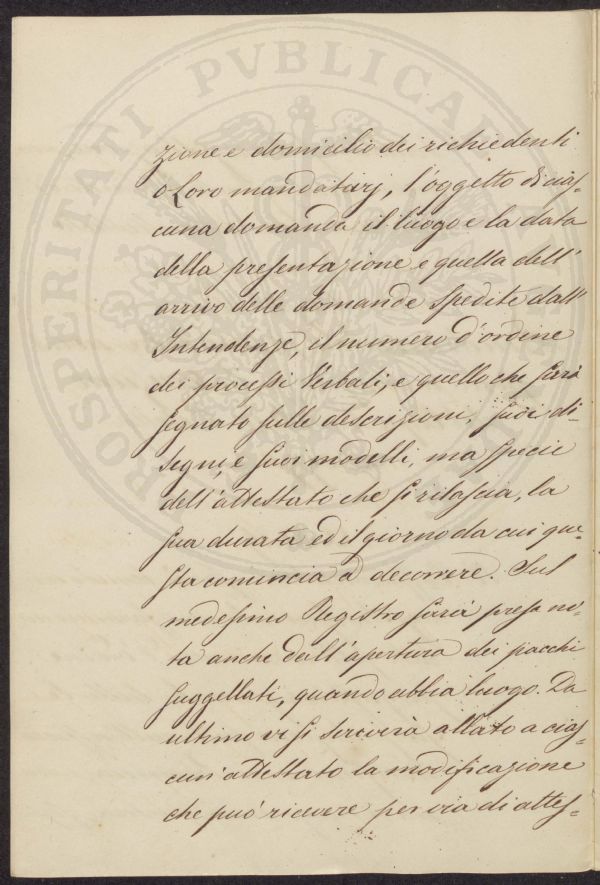 PROSPERITATI PVBLICAE
zione e domicilio dei richiedenti
o Loro mandatarj, l'oggetto di cias=
cuna domanda il luogo e la data
della presentazione e quella dell'
arrivo delle domande spedite dall'
Intendenze, il numero d'ordine
dei processi Verbali, e quello che sarà
segnato sulle descrizioni, suoi di=
segni, e suoi modelli, ma specie
dell'attestato che si rilascia, la
sua durata ed il giorno da cui que=
sta comincia a decorrere. Sul
medesimo Registro sarà presa no=
ta anche dall'apertura dei pacchi
suggellati, quando abbia luogo. Da
ultimo vi si scriverà allato a cias=
cun'attestato la modificazione
che può ricevere per via di attes=